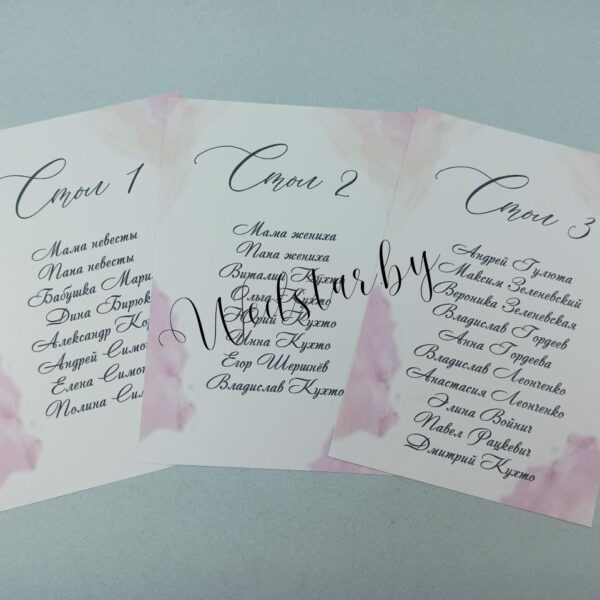 Стол 1
Мама невесты
Папа невесты
Бабушка
Дина
Александр
Андрей
Елена
Полина
Стол 2
Мама жениха
Папа жениха
Виталий Кухто
Ольга Кухто
Юрий Кухто
Инна Кухто
Егор Шершнёв
Владислав Кухто
Стол 3
Андрей Гулюта
Максим Зеленевский
Вероника Зеленевская
Владислав Гордеев
Анна Гордеева
Владислав Леонченко
Анастасия Леонченко
Элина Войнич
Павел Рацкевич
Дмитрий Кухто
Wedstarby